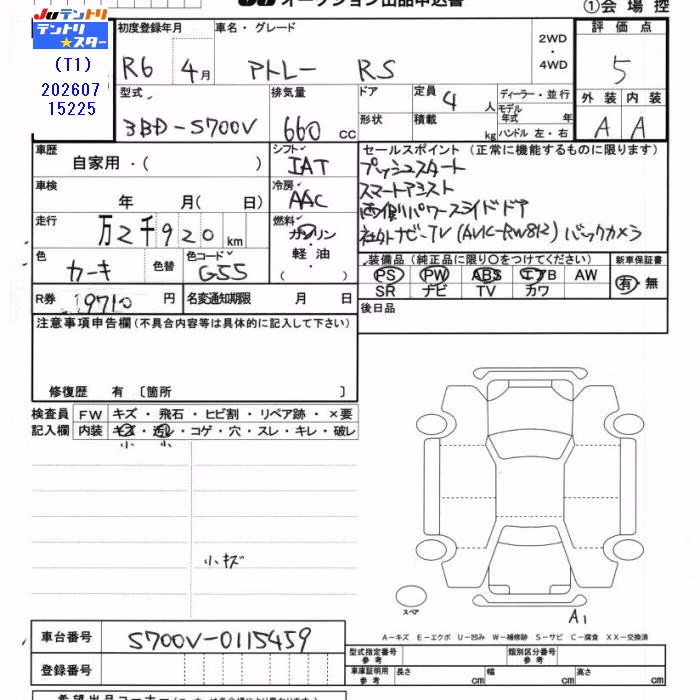 JUテントリ
テントリ★スター
(T1)
202607
15225
JU オークション出品申込書
①会場控
初度登録年月
車名・グレード
2WD
・
4WD
評価点
R6 4月
アトレー RS
5
型式
排気量
ドア
定員 4 人
ディーラー・並行
外装 内装
3BD-S700V
660 cc
形状
積載 kg
モデル年式 年
ハンドル 左・右
A A
車歴
自家用・( )
シフト
IAT
セールスポイント (正常に機能するものに限ります)
プッシュスタート
車検
年 月( 日)
冷房
AAC
スマートアシスト
両側パワースライドドア
走行
万2千920km
燃料
ガソリン
・
軽油
・
( )
社外ナビ-TV (AVIC-RW812) バックカメラ
色
カーキ
色替
色コード
G55
装備品 (純正品に限り〇をつけてください)
新車保証書
PS PW ABS エアB AW
SR ナビ TV カワ
有・無
R券 9710 円
名変通知期限 月 日
後日品
注意事項申告欄 (不具合内容等は具体的に記入して下さい)
修復歴 有 〔箇所 〕
検査員記入欄
FW キズ・飛石・ヒビ割・リペア跡・×要
内装 キズ・汚れ・コゲ・穴・スレ・キレ・破レ
小 小
小キズ
スペア
A1
A-キズ E-エクボ U-凹み W-補修跡 S-サビ C-腐食 XX-交換済
車台番号 S700V-0115459
型式指定番号参考
類別区分番号参考
登録番号
車庫証明用参考 長さ cm 幅 cm 高さ cm